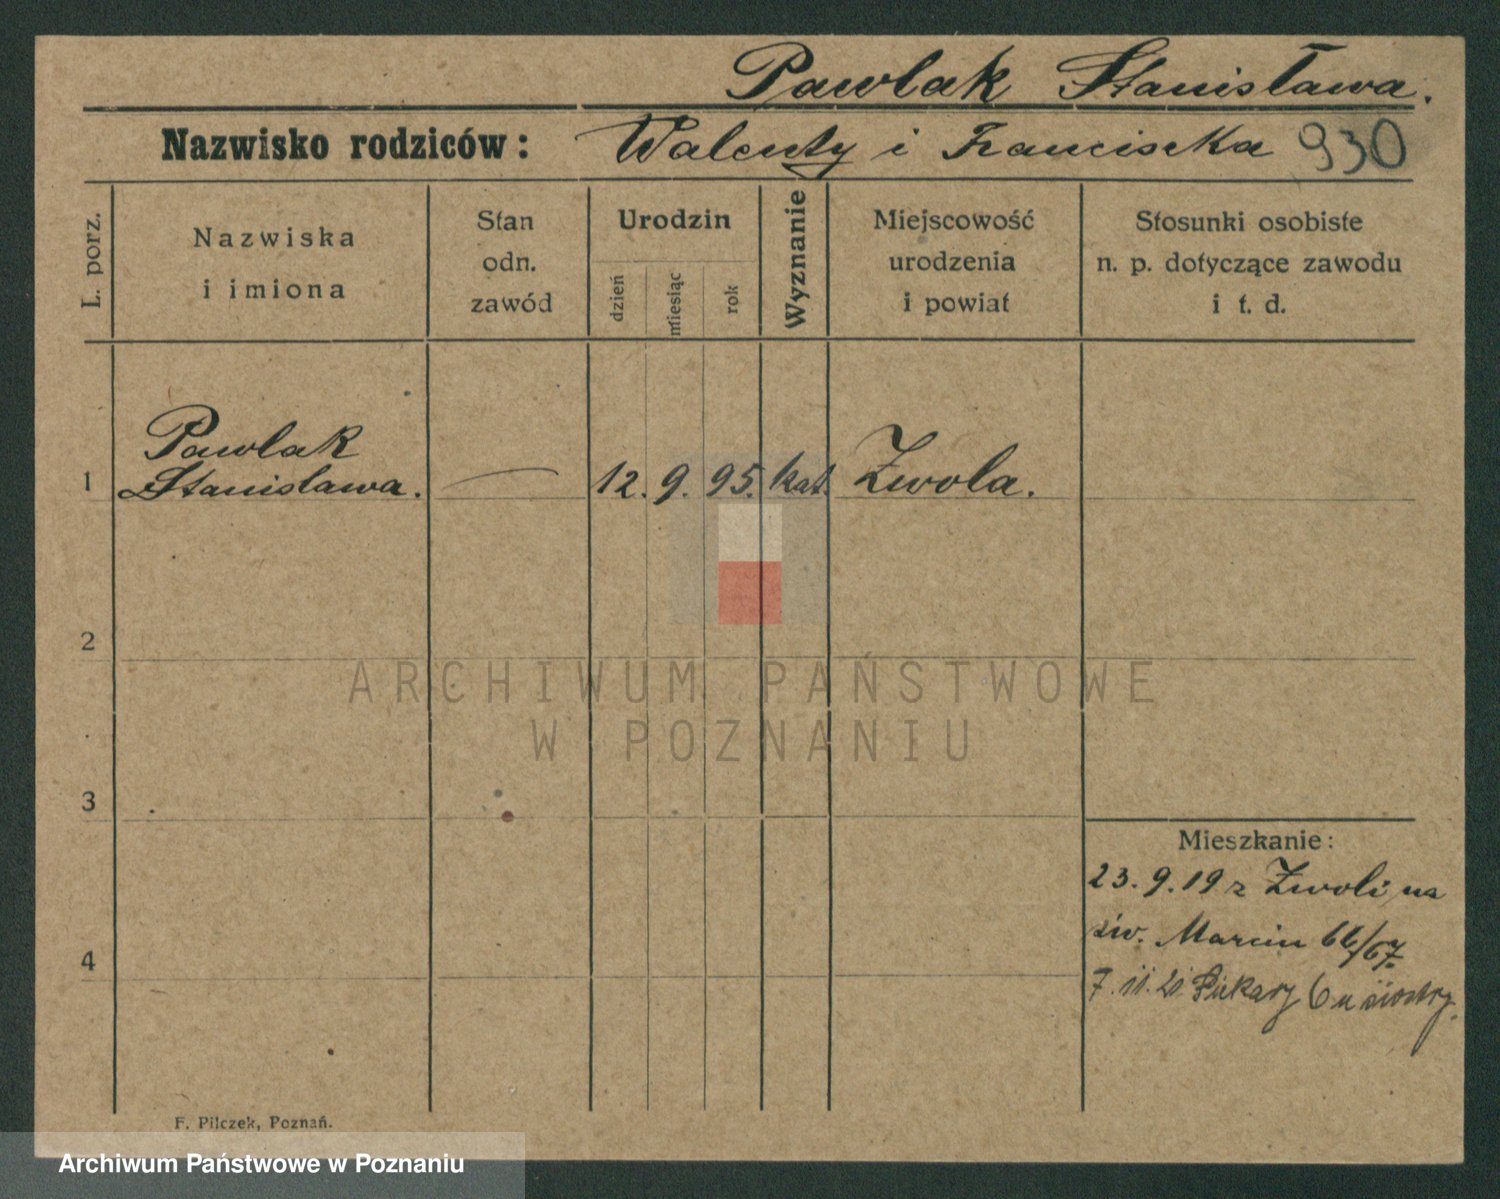 Pawlak Stanisława.
Nazwisko rodziców: Walenty i Franciszka 930
L. porz.
Nazwiska
i imiona
Stan
odn.
zawód
Urodzin
dzień
miesiąc
rok
Wyznanie
Miejscowość
urodzenia
i powiat
Stosunki osobiste
n. p. dotyczące zawodu
i t. d.
Pawlak
1 Stanisława. — 12. 9. 95. kat. Zwola.
2
ARCHIWUM PAŃSTWOWE
W POZNANIU
3
Mieszkanie:
23. 9. 19 z Zwoli na
św. Marcin 66/67.
4
7. 11. 21 Piekary 6 u siostry.
F. Pilczek, Poznań.
Archiwum Państwowe w Poznaniu